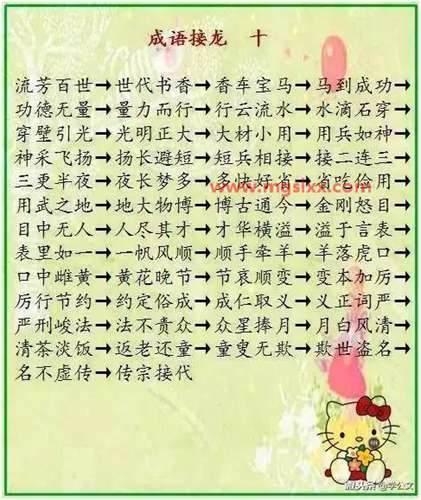 成语接龙 十
流芳百世→世代书香→香车宝马→马到成功→
功德无量→量力而行→行云流水→水滴石穿→
穿壁引光→光明正大→大材小用→用兵如神→
神采飞扬→扬长避短→短兵相接→接二连三→
三更半夜→夜长梦多→多快好省→省吃俭用→
www.mgslxx.com
用武之地→地大物博→博古通今→金刚怒目→
目中无人→人尽其才→才华横溢→溢于言表→
表里如一→一帆风顺→顺手牵羊→羊落虎口→
口中雌黄→黄花晚节→节哀顺变→变本加厉→
厉行节约→约定俗成→成仁取义→义正词严→
严刑峻法→法不贵众→众星捧月→月白风清→
清茶淡饭→返老还童→童叟无欺→欺世盗名→
名不虚传→传宗接代
@学公文